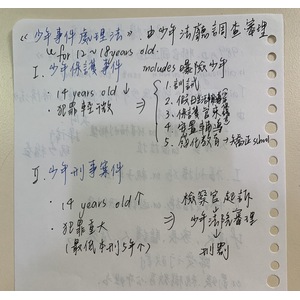 《少年事件處理法》,由少年法庭調查審理
for 12~18 years old.
I. 少年保護事件 includes 曝險少年
14 years old ↓
犯罪輕微 ⇒
1. 訓誡
2. 假日生活輔導
3. 保護管束
4. 安置輔導
5. 感化教育 → 矯正school
II. 少年刑事案件
· 14 years old ↑
· 犯罪重大
(最低本刑5年↑)
⇒
檢察官起訴
↓
少年法院審理
↓
刑罰